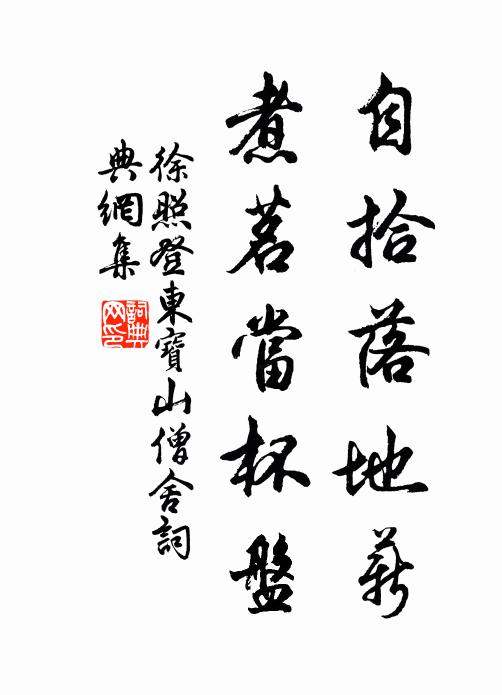 自拾落地薪
煮茗當杯盤
徐照登東寶山僧舍詞
典網集
詞典
网印